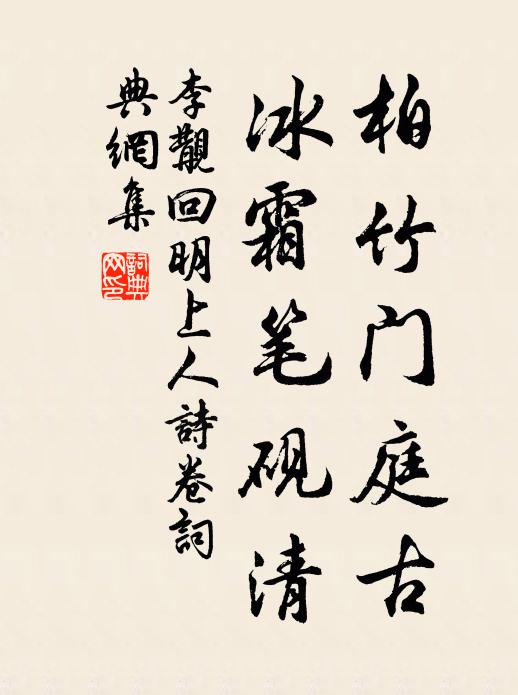 柏竹门庭古
冰霜笔砚清
李覯回明上人詩卷詞
典網集
詞典
网印